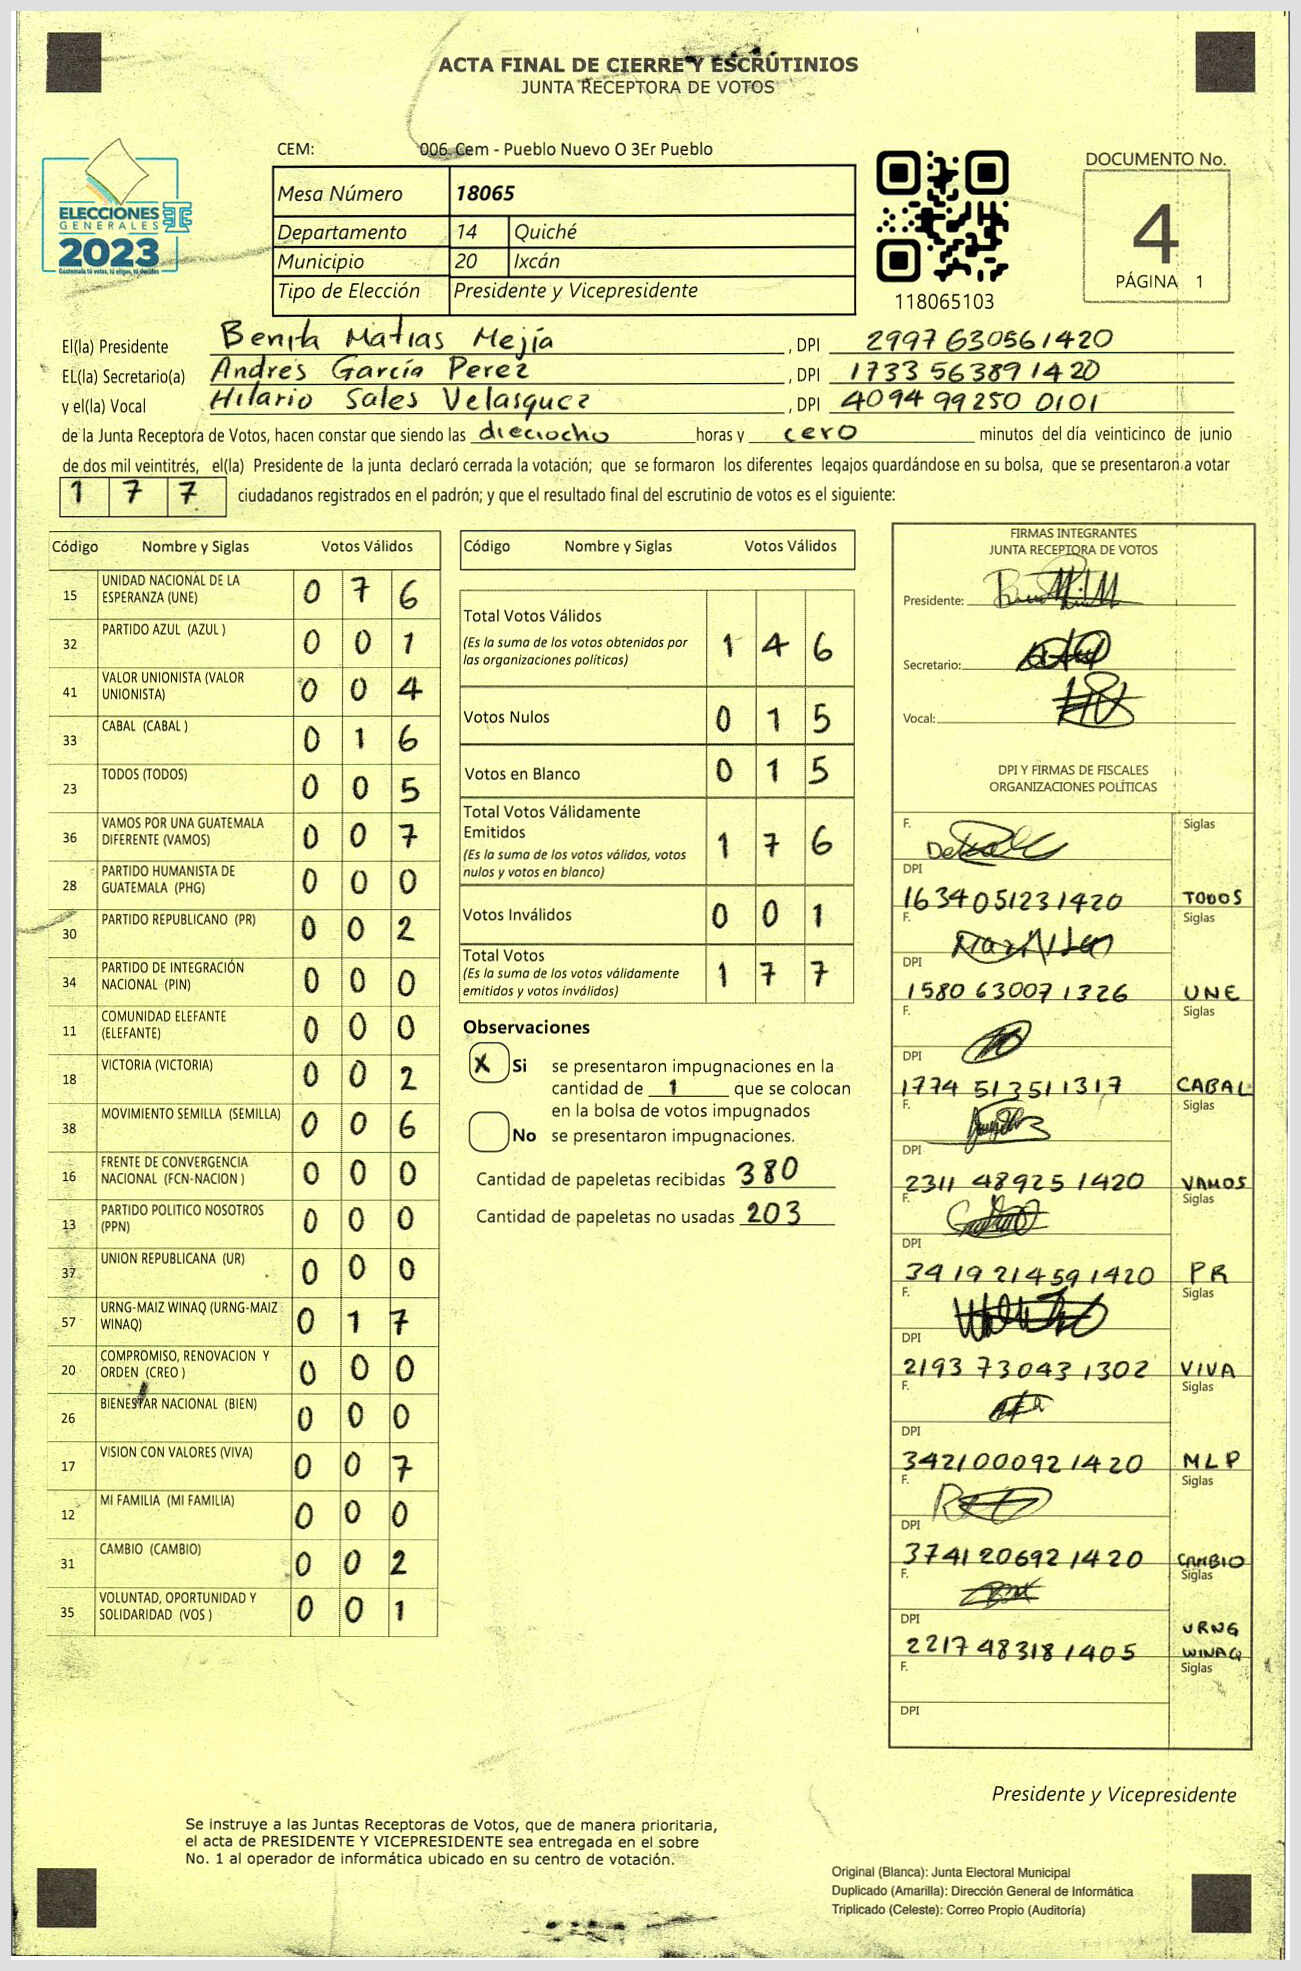 ACTA FINAL DE CIERRE Y ESCRÚTINIOS
JUNTA RECEPTORA DE VOTOS
CEM: 006. Cem - Pueblo Nuevo O 3Er Pueblo
ELECCIONES
GENERALES
2023
Guatemala tú votas, tú eliges, tú decides
Mesa Número 18065
Departamento 14 Quiché
Municipio 20 Ixcán
Tipo de Elección Presidente y Vicepresidente
118065103
DOCUMENTO No.
4
PÁGINA 1
El(la) Presidente Benita Matias Mejía , DPI 2997 630561420
EL(la) Secretario(a) Andres García Perez , DPI 1733 563891420
y el(la) Vocal Hilario Sales Velasquez , DPI 4094 99250 0101
de la Junta Receptora de Votos, hacen constar que siendo las dieciocho horas y cero minutos del día veinticinco de junio
de dos mil veintitrés, el(la) Presidente de la junta declaró cerrada la votación; que se formaron los diferentes legajos guardándose en su bolsa, que se presentaron a votar
1 7 7 ciudadanos registrados en el padrón; y que el resultado final del escrutinio de votos es el siguiente:
Código Nombre y Siglas Votos Válidos
15 UNIDAD NACIONAL DE LA ESPERANZA (UNE) 0 7 6
32 PARTIDO AZUL (AZUL ) 0 0 1
41 VALOR UNIONISTA (VALOR UNIONISTA) 0 0 4
33 CABAL (CABAL ) 0 1 6
23 TODOS (TODOS) 0 0 5
36 VAMOS POR UNA GUATEMALA DIFERENTE (VAMOS) 0 0 7
28 PARTIDO HUMANISTA DE GUATEMALA (PHG) 0 0 0
30 PARTIDO REPUBLICANO (PR) 0 0 2
34 PARTIDO DE INTEGRACIÓN NACIONAL (PIN) 0 0 0
11 COMUNIDAD ELEFANTE (ELEFANTE) 0 0 0
18 VICTORIA (VICTORIA) 0 0 2
38 MOVIMIENTO SEMILLA (SEMILLA) 0 0 6
16 FRENTE DE CONVERGENCIA NACIONAL (FCN-NACION ) 0 0 0
13 PARTIDO POLITICO NOSOTROS (PPN) 0 0 0
37 UNION REPUBLICANA (UR) 0 0 0
57 URNG-MAIZ WINAQ (URNG-MAIZ WINAQ) 0 1 7
20 COMPROMISO, RENOVACION Y ORDEN (CREO ) 0 0 0
26 BIENESTAR NACIONAL (BIEN) 0 0 0
17 VISION CON VALORES (VIVA) 0 0 7
12 MI FAMILIA (MI FAMILIA) 0 0 0
31 CAMBIO (CAMBIO) 0 0 2
35 VOLUNTAD, OPORTUNIDAD Y SOLIDARIDAD (VOS ) 0 0 1
Código Nombre y Siglas Votos Válidos
Total Votos Válidos
(Es la suma de los votos obtenidos por
las organizaciones políticas) 1 4 6
Votos Nulos 0 1 5
Votos en Blanco 0 1 5
Total Votos Válidamente
Emitidos
(Es la suma de los votos válidos, votos
nulos y votos en blanco) 1 7 6
Votos Inválidos 0 0 1
Total Votos
(Es la suma de los votos válidamente
emitidos y votos inválidos) 1 7 7
Observaciones
X Si se presentaron impugnaciones en la
cantidad de 1 que se colocan
en la bolsa de votos impugnados
No se presentaron impugnaciones.
Cantidad de papeletas recibidas 380
Cantidad de papeletas no usadas 203
FIRMAS INTEGRANTES
JUNTA RECEPTORA DE VOTOS
Presidente:
Secretario:
Vocal:
DPI Y FIRMAS DE FISCALES
ORGANIZACIONES POLÍTICAS
F. Siglas
DPI
1634051231420 TODOS
F. Siglas
DPI
1580 63007 1326 UNE
F. Siglas
DPI
1774 513511317 CABAL
F. Siglas
DPI
2311 48925 1420 VAMOS
F. Siglas
DPI
3419 21459 1420 PR
F. Siglas
DPI
2193 73043 1302 VIVA
F. Siglas
DPI
3421000921420 MLP
F. Siglas
DPI
3741206921420 CAMBIO
F. Siglas
DPI
2217 483181405 URNG WINAQ
F. Siglas
DPI
Presidente y Vicepresidente
Se instruye a las Juntas Receptoras de Votos, que de manera prioritaria,
el acta de PRESIDENTE Y VICEPRESIDENTE sea entregada en el sobre
No. 1 al operador de informática ubicado en su centro de votación.
Original (Blanca): Junta Electoral Municipal
Duplicado (Amarilla): Dirección General de Informática
Triplicado (Celeste): Correo Propio (Auditoría)